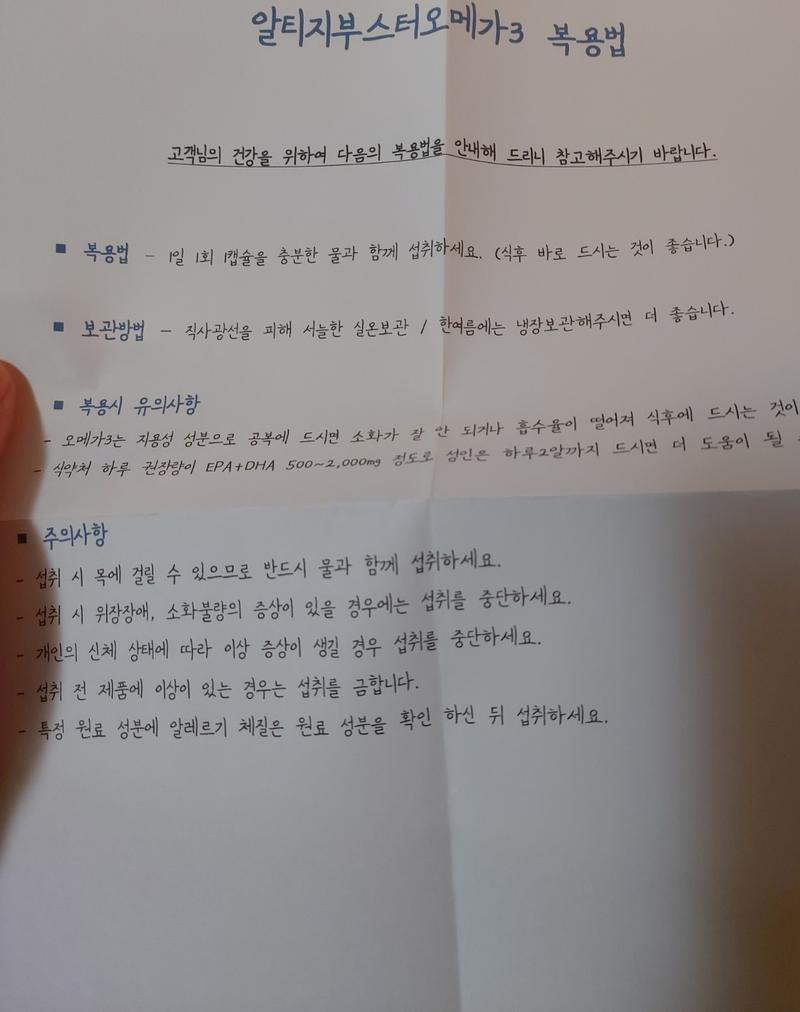 알티지부스터오메가3 복용법
고객님의 건강을 위하여 다음의 복용법을 안내해 드리니 참고해주시기 바랍니다.
■ 복용법 - 1일 1회 1캡슐을 충분한 물과 함께 섭취하세요. (식후 바로 드시는 것이 좋습니다.)
■ 보관방법 - 직사광선을 피해 서늘한 실온보관 / 한여름에는 냉장보관해주시면 더 좋습니다.
■ 복용시 유의사항
- 오메가3는 지용성 성분으로 공복에 드시면 소화가 잘 안 되거나 흡수율이 떨어져 식후에 드시는 것이
- 식약처 하루 권장량이 EPA+DHA 500~2,000mg 정도로 성인은 하루2알까지 드시면 더 도움이 될
■ 주의사항
- 섭취 시 목에 걸릴 수 있으므로 반드시 물과 함께 섭취하세요.
- 섭취 시 위장장애, 소화불량의 증상이 있을 경우에는 섭취를 중단하세요.
- 개인의 신체 상태에 따라 이상 증상이 생길 경우 섭취를 중단하세요.
- 섭취 전 제품에 이상이 있는 경우는 섭취를 금합니다.
- 특정 원료 성분에 알레르기 체질은 원료 성분을 확인 하신 뒤 섭취하세요.